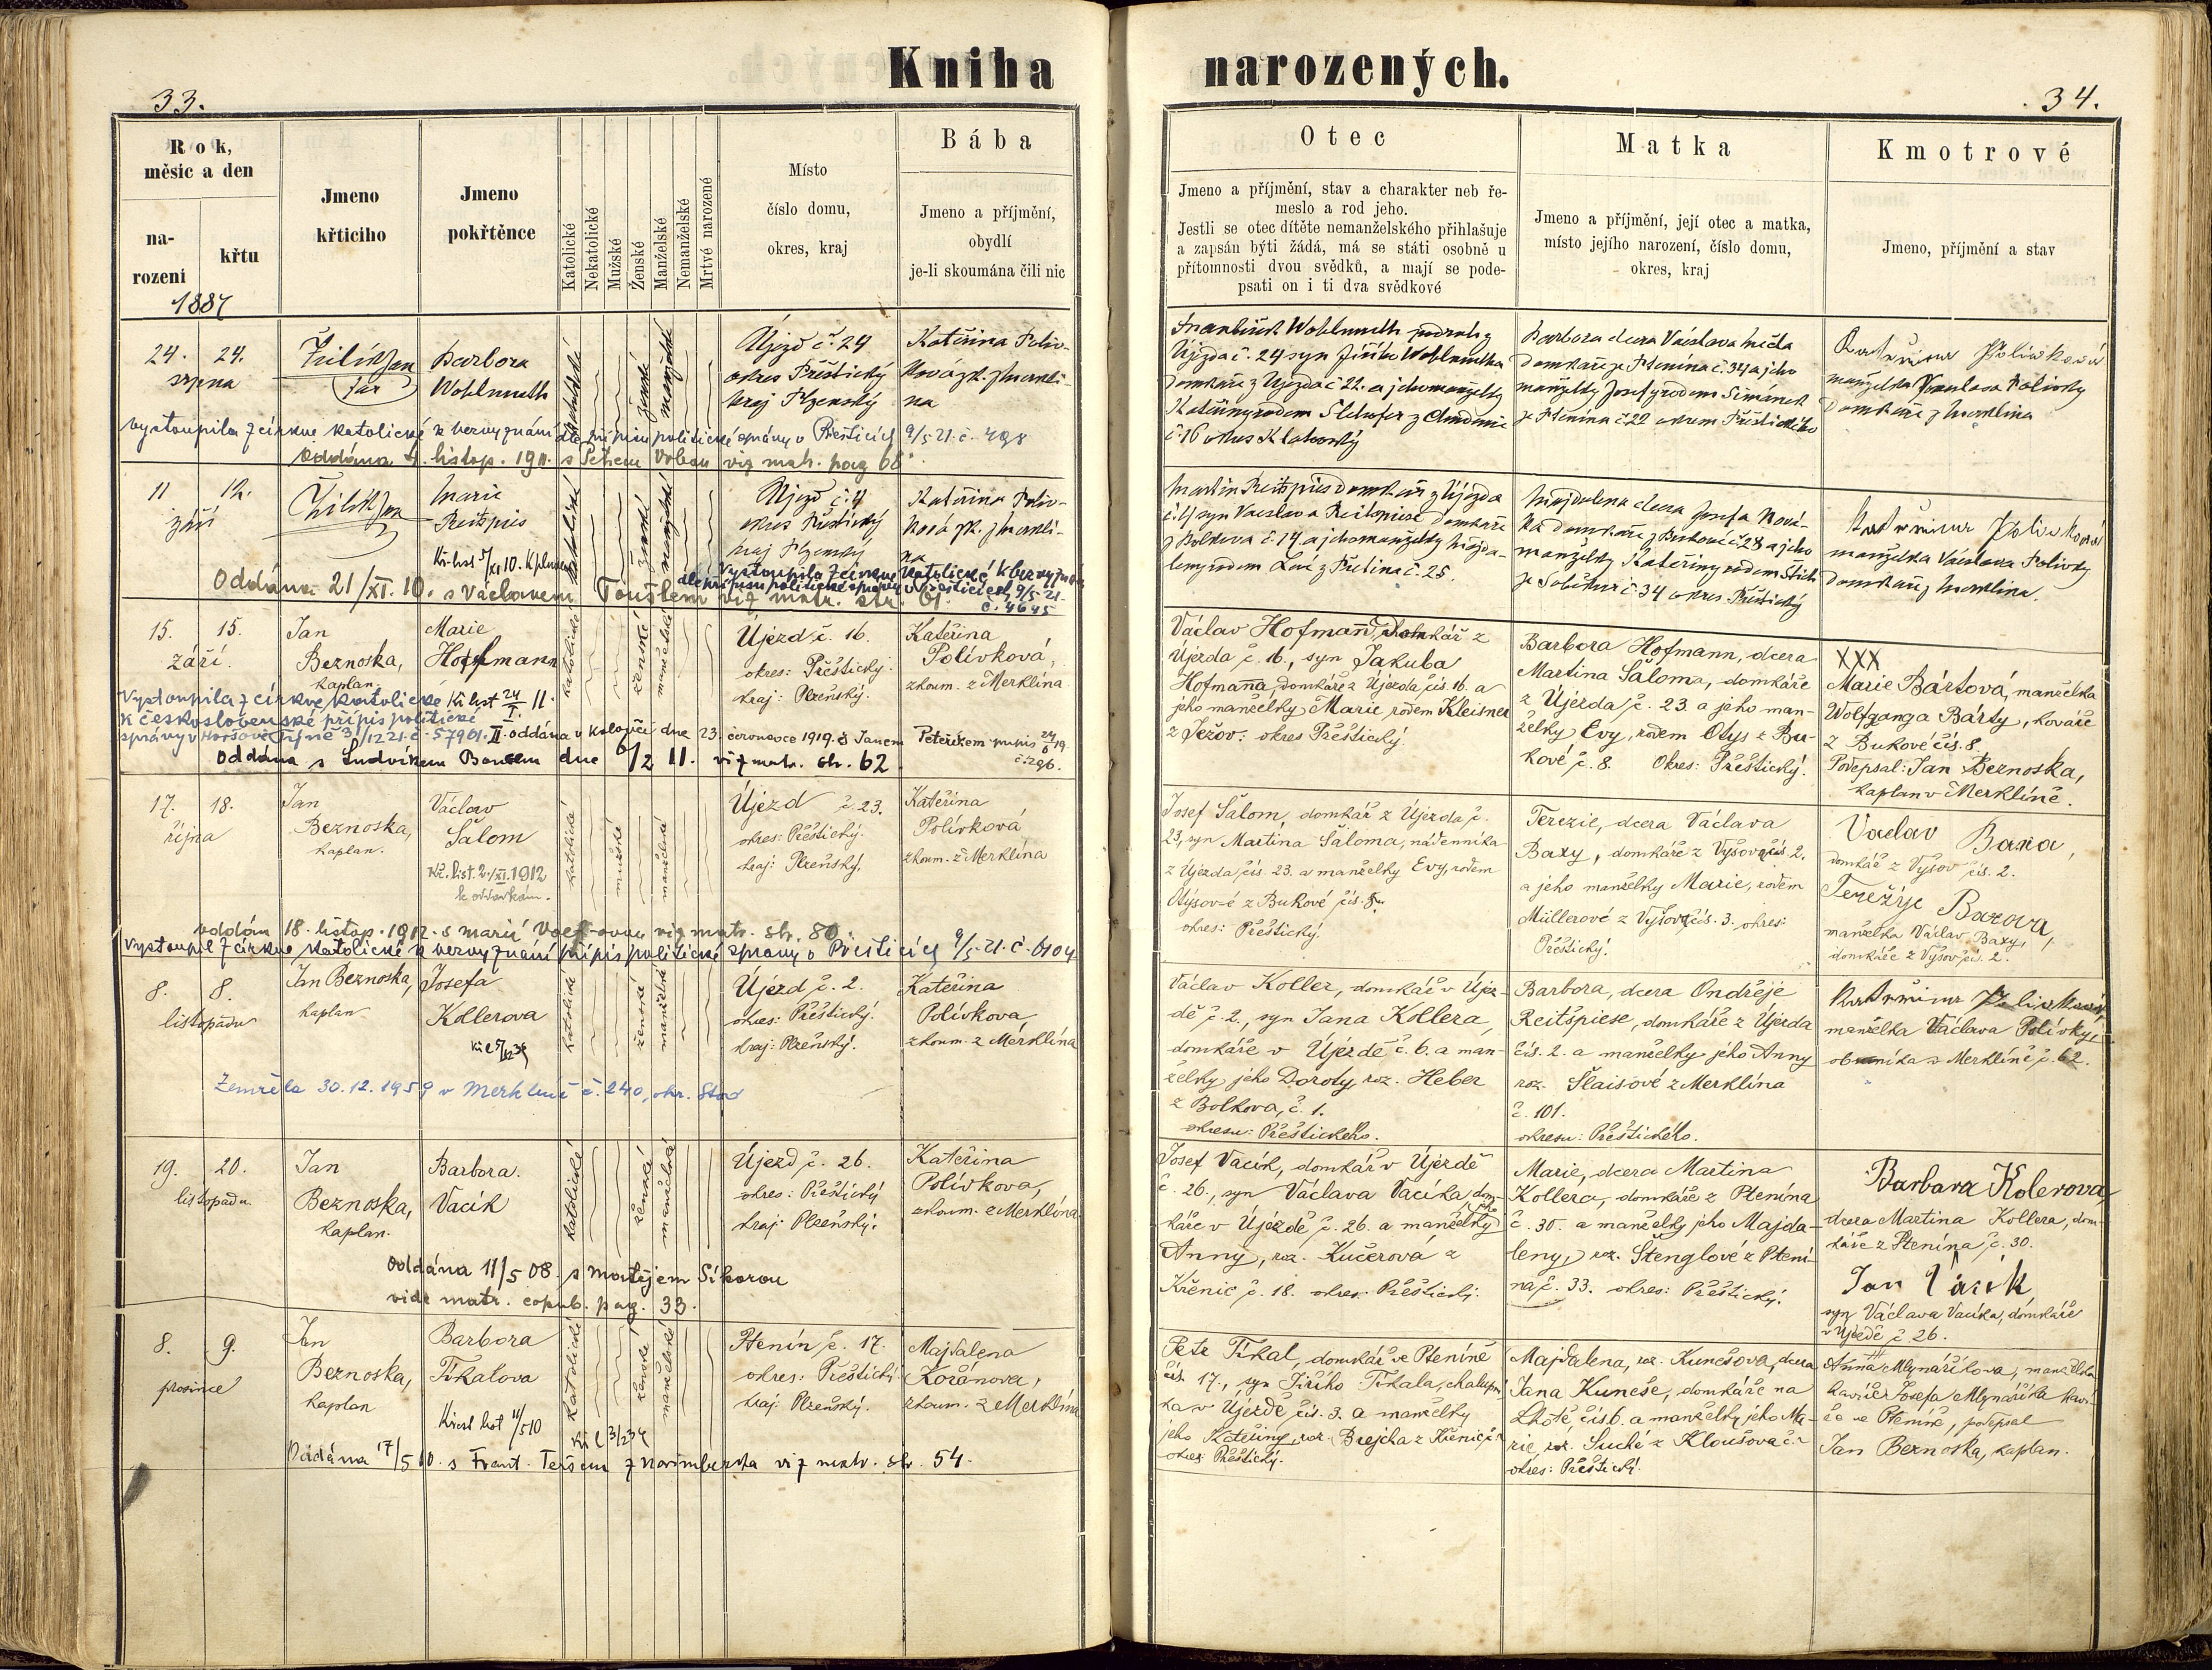 Kniha narozených.
33.
34.
Rok, měsíc a den
narození
křtu
Jmeno křticího
Jmeno pokřtěnce
Katolické
Nekatolické
Mužské
Ženské
Manželské
Nemanželské
Mrtvé narozené
Místo
číslo domu,
okres, kraj
Bába
Jmeno a příjmění,
obydlí
je-li skoumána čili nic
Otec
Jmeno a příjmění, stav a charakter neb ře-
meslo a rod jeho.
Jestli se otec dítěte nemanželského přihlašuje
a zapsán býti žádá, má se státi osobně u
přítomnosti dvou svědků, a mají se pode-
psati on i ti dva svědkové
Matka
Jmeno a příjmění, její otec a matka,
místo jejího narození, číslo domu,
okres, kraj
Kmotrové
Jmeno, příjmění a stav
1887
24. 24.
srpna
Barbora
Wohlmuth
katolické
ženské
manželské
Újezd č. 24
okres Přeštický
kraj Plzenský
Kateřina Poliv-
ková zk. z Merklí-
na
Újezda č. 24 syn Jiřího Wohlmutha
domkáře z Újezda č 22. a jeho manželky
č. 16 okres Klatovský
Barbora dcera Václava
domkáře ze Ptenína č. 34 a jeho
manželky Josefy rodem Šimánek
ze Ptenína č 22 okresu Přeštického
Kateřina Polívková
manželka Václava Polívky
domkáře z Merklína
vystoupila z církve katolické k bezvyznání dle přípisu politické správy v Přešticích 9/5 21. č. 498
oddána listop. 1911. s Petrem viz matr. pag 68
11 12.
září
Marie
Reitspies
katolické
ženské
manželské
Újezd č. 4
okres Přeštický
kraj Plzenský
Kateřina Poliv-
ková zk. z Merklí-
na
Martin Reitspies domkář z Újezda
č. 4 syn Václava Reitspiese domkáře
z Bolkova č. 14 a jeho manželky Majda-
leny rodem z č. 25.
Majdalena dcera Josefa Nová-
ka domkáře z Bukové č 28 a jeho
manželky Kateřiny rodem
ze Soběkur č. 34 okres Přeštický
Kateřina Polívková
manželka Václava Polívky
domkáře z Merklína.
Vystoupila z církve katolické k bezvyznání
dle přípisu politické správy v Přešticích 9/5 21.
č. 4645
Oddána 21/XI. 10. s Václavem Touslem viz matr. str. 61.
15. 15.
září.
Jan
Beznoska,
kaplan.
Marie
Hoffmann
katolické
ženské
manželské
Újezd č. 16.
okres: Přeštický.
kraj: Plzeňský.
Kateřina
Polívková,
zkoum. z Merklína
Václav Hofmann, domkář z
Újezda č. 16., syn Jakuba
Hofmanna, domkáře z Újezda čís 16. a
jeho manželky Marie, rodem Kleisner
z Ježov. okres Přeštický.
Barbora Hofmann, dcera
Martina Šaloma, domkáře
z Újezda č. 23. a jeho man-
želky Evy, rodem Otys z Bu-
kové č. 8. Okres: Přeštický.
XXX
Marie Bártová, manželka
Wolfganga Bárty, kováře
z Bukové čís. 8.
Podepsal: Jan Beznoska,
kaplan v Merklíně.
Vystoupila z církve katolické Kř. list 24/I. 11.
k československé přípis politické
správy v Horšově Týně 3/12 21. č. 57901. II. oddána v Koloveči dne 23. července 1919. s Janem Peteříkem přípis 24/6 19. č. 296.
oddána s Ludvíkem dne 6/2 11. viz matr. str. 62.
17. 18.
října
Jan
Beznoska,
kaplan.
Václav
Šalom
Kř. list. 2./XI. 1912
k oddavkám.
katolické
mužské
manželské
Újezd č. 23.
okres: Přeštický.
kraj: Plzeňský.
Kateřina
Polívková
zkoum. z Merklína
Josef Šalom, domkář z Újezda č.
23, syn Martina Šaloma, nádenníka
z Újezda, čís. 23. a manželky Evy, rodem
Otýsové z Bukové čís. 8.
okres: Přeštický.
Terezie, dcera Václava
Baxy, domkáře z Vyšova čís 2.
a jeho manželky Marie, rodem
Müllerové z Vyšova čís. 3. okres:
Přeštický.
Vaclav Baxa,
domkář z Vyšov čís. 2.
Terežije Baxova,
manželka Václav. Baxy,
domkáře z Vyšov čís. 2.
oddán 18. listop. 1912. s Marií viz matr. str. 80.
Vystoupil z církve katolické k bezvyznání přípis politické správy v Přešticích 9/5 21. č. 6104.
8. 8.
listopadu
Jan Beznoska,
kaplan
Josefa
Kollerova
katolické
ženské
manželské
Újezd č. 2.
okres: Přeštický.
kraj: Plzeňský.
Kateřina
Polívkova
zkoum. z Merklína
Václav Koller, domkář v Újez-
dě č. 2., syn Jana Kollera,
domkáře v Újezdě č. 6. a man-
želky jeho Doroty roz. Heber
z Bolkova, č. 1.
okresu: Přeštického.
Barbora, dcera Ondřeje
Reitšpiese, domkáře z Újezda
čís. 2. a manželky jeho Anny
roz. Šlaisové z Merklína
č. 101.
okresu: Přeštického.
Kateřina Polívková,
manželka Václava Polívky,
obuvníka v Merklíně č. 62.
Zemřela 30.12.1959 v Merklíně č. 240, okr. Stod
19. 20.
listopadu
Jan
Beznoska,
kaplan.
Barbora.
Vacík
katolické
ženské
manželské
Újezd č. 26.
okres: Přeštický
kraj: Plzeňský.
Kateřina
Polívkova,
zkoum. z Merklína
Josef Vacík, domkář v Újezdě
č. 26., syn Václava Vacíka, dom-
káře v Újezdě č. 26. a manželky jeho
Anny, roz. Kučerová z
Křenic č. 18. okres. Přeštický.
Marie, dcera Martina
Kollera, domkáře z Ptenína
č. 30. a manželky jeho Majda-
leny, roz. Štenglové z Ptení-
na č. 33. okres: Přeštický.
Barbara Kolerova,
dcera Martina Kollera, dom-
káře z Ptenína č. 30.
Jan Vacík,
syn Václava Vacíka, domkáře
v Újezdě č 26.
Oddána 11/5 08. s Matějem Síkorou
vide matr. copul. pag. 33.
8. 9.
prosince
Jan
Beznoska,
kaplan
Barbora
Tikalova
Křest list 4/5 10
katolické
ženské
manželské
Ptenín č. 17.
okres: Přeštický
kraj: Plzeňský.
Majdalena
Kořánova,
zkoum. z Merklína
Petr Tikal, domkář ve Pteníně
čís. 17., syn Jiřího Tikala, chalupní-
ka v Újezdě čís. 3. a manželky
jeho Kateřiny, roz. Brejcha z Křenic č.
okres: Přeštický.
Majdalena, roz. Kunešova, dcera
Jana Kuneše, domkáře na
Lhotě čís 6. a manželky jeho Ma-
rie, roz. Suché z Kloušova č.
okres: Přeštický.
Anna Mlynáříkova, manželka
kováře Josefa Mlynáříka ková-
ře ve Pteníně, podepsal
Jan Beznoska, kaplan.
Oddána 17/5 10. s Frant. Teršem z Norimberka viz matr. str. 54.